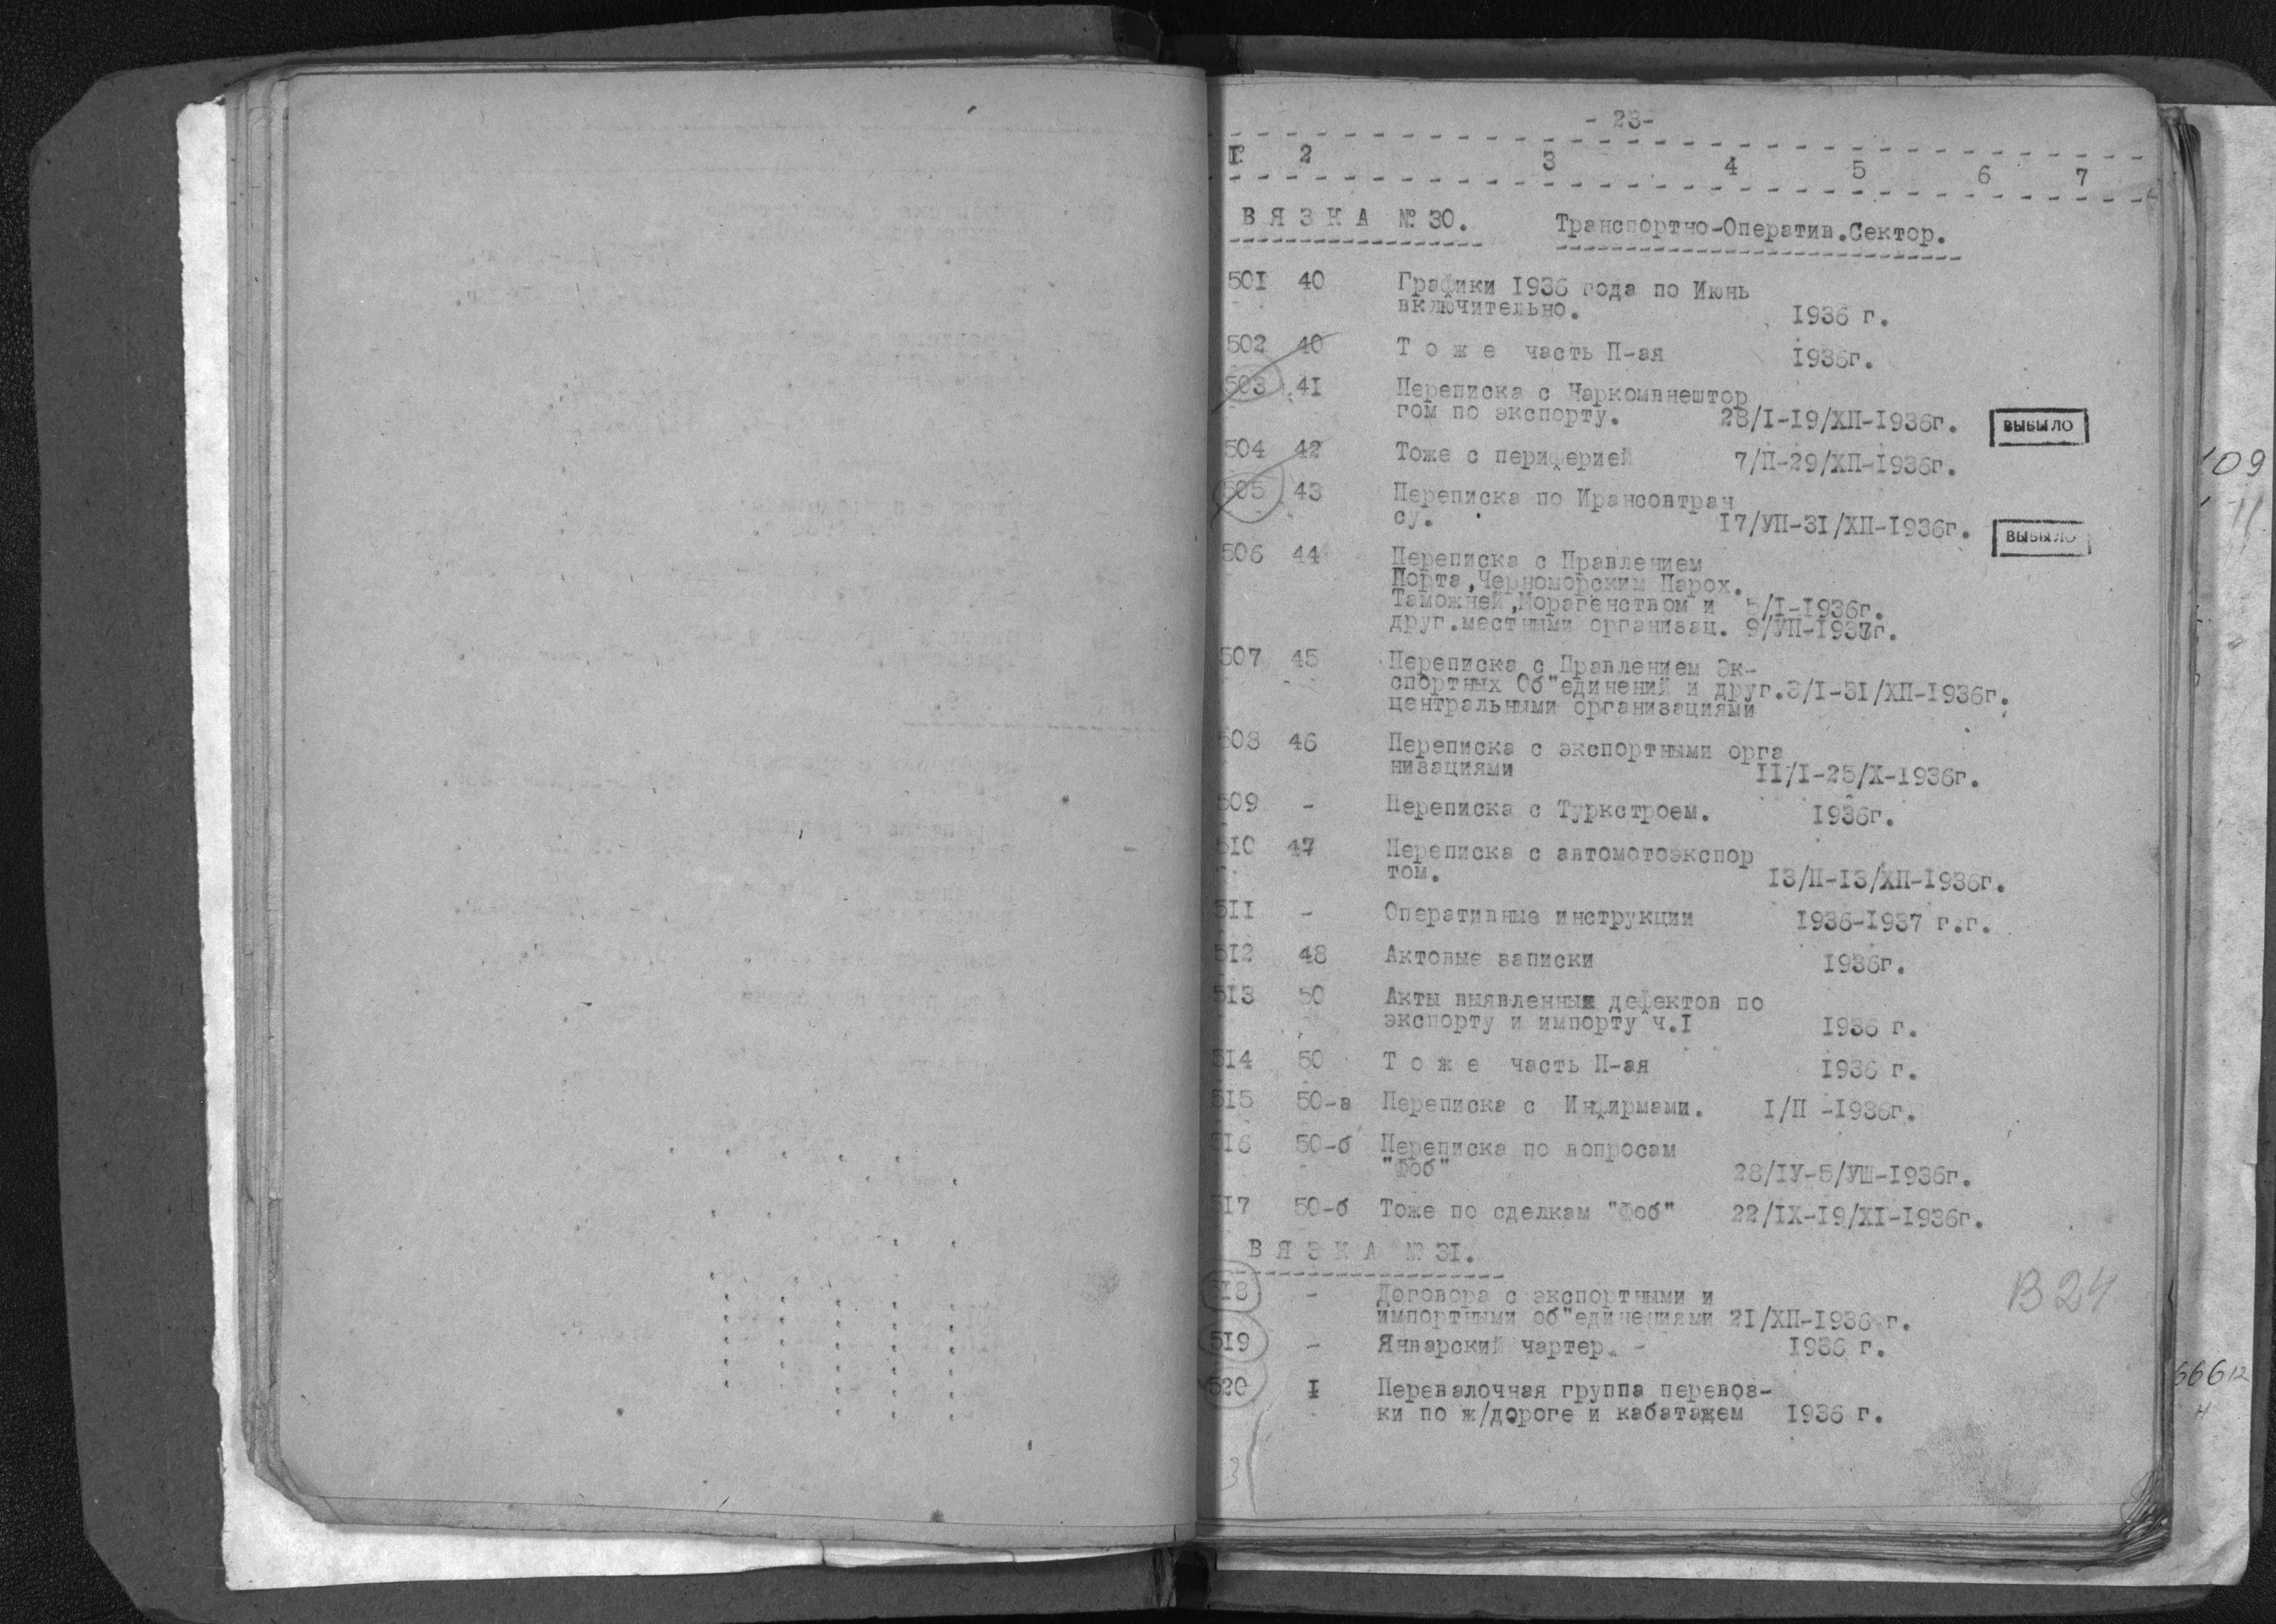 - 23-
I. 2 3 4 5 6 7
В Я З К А № 30. Транспортно-Оператив.Сектор.
501 40 Графики 1936 года по Июнь
включительно. 1936 г.
502 40 Т о ж е часть П-ая 1936г.
503 41 Переписка с Наркомвнештор
гом по экспорту. 28/I-19/ХП-1936г. ВЫБЫЛО
504 42 Тоже с периферией 7/П-29/ХП-1936г.
505 43 Переписка по Ирансовтран
су. 17/УП-31/ХП-1936г. ВЫБЫЛО
506 44 Переписка с Правлением
Порта,Черноморским Парох.
Таможней,Морагенством и 5/I-1936г.
друг.местными организац. 9/УП-1937г.
507 45 Переписка с Правлением Эк-
спортных Об"единений и друг.3/I-31/ХП-1936г.
центральными организациями
508 46 Переписка с экспортными орга
низациями II/I-25/X-1936г.
509 - Переписка с Туркстроем. 1936г.
510 47 Переписка с автомотоэкспор
том. 13/П-13/ХП-1936г.
511 - Оперативные инструкции 1936-1937 г.г.
512 48 Актовые записки 1936г.
513 50 Акты выявленных дефектов по
экспорту и импорту ч.I 1936 г.
514 50 Т о ж е часть П-ая 1936 г.
515 50-а Переписка с Инфирмами. I/П -1936г.
516 50-б Переписка по вопросам
"Фоб" 28/IУ-5/УШ-1936г.
517 50-б Тоже по сделкам "Фоб" 22/IX-19/XI-1936г.
В Я З К А № 31.
518 - Договора с экспортными и
импортными об"единениями 21/ХП-1936 г.
519 - Январский чартер. - 1936 г.
520 I Перевалочная группа перевоз-
ки по ж/дороге и кабатажем 1936 г.
В 24
109
11
3